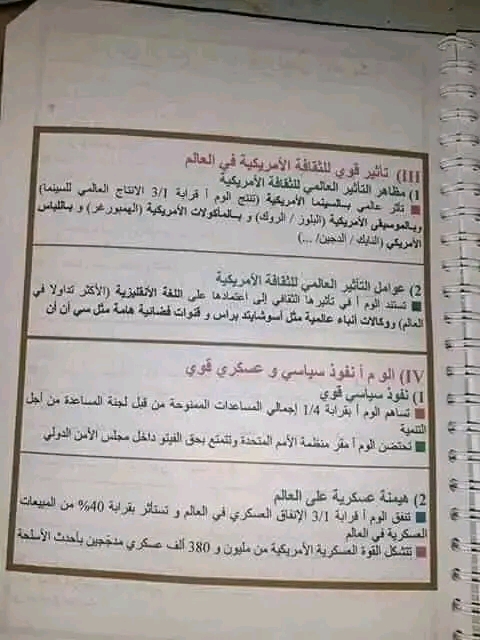 III) تأثير قوي للثقافة الأمريكية في العالم
1) مظاهر التأثير العالمي للثقافة الأمريكية
تأثر عالمي بالسينما الأمريكية (تنتج الوم أ قرابة 3/1 الانتاج العالمي للسينما)
وبالموسيقى الأمريكية (البلوز / الروك) و بالمأكولات الأمريكية (الهمبورغر) و باللباس
الأمريكي (النايك / الدجين/ ...)
2) عوامل التأثير العالمي للثقافة الأمريكية
تستند الوم أ في تأثيرها الثقافي إلى اعتمادها على اللغة الأنقليزية (الأكثر تداولا في
العالم) ووكالات أنباء عالمية مثل أسوشايتد براس و قنوات فضائية هامة مثل سي أن أن
IV) الو م أ نفوذ سياسي و عسكري قوي
1) نفوذ سياسي قوي
تساهم الوم أ بقرابة 1/4 إجمالي المساعدات الممنوحة من قبل لجنة المساعدة من أجل
التنمية
تحتضن الوم أ مقر منظمة الأمم المتحدة وتتمتع بحق الفيتو داخل مجلس الأمن الدولي
2) هيمنة عسكرية على العالم
تنفق الوم أ قرابة 3/1 الإنفاق العسكري في العالم و تستأثر بقرابة 40% من المبيعات
العسكرية في العالم
تتشكل القوة العسكرية الأمريكية من مليون و 380 ألف عسكري مدججين بأحدث الأسلحة